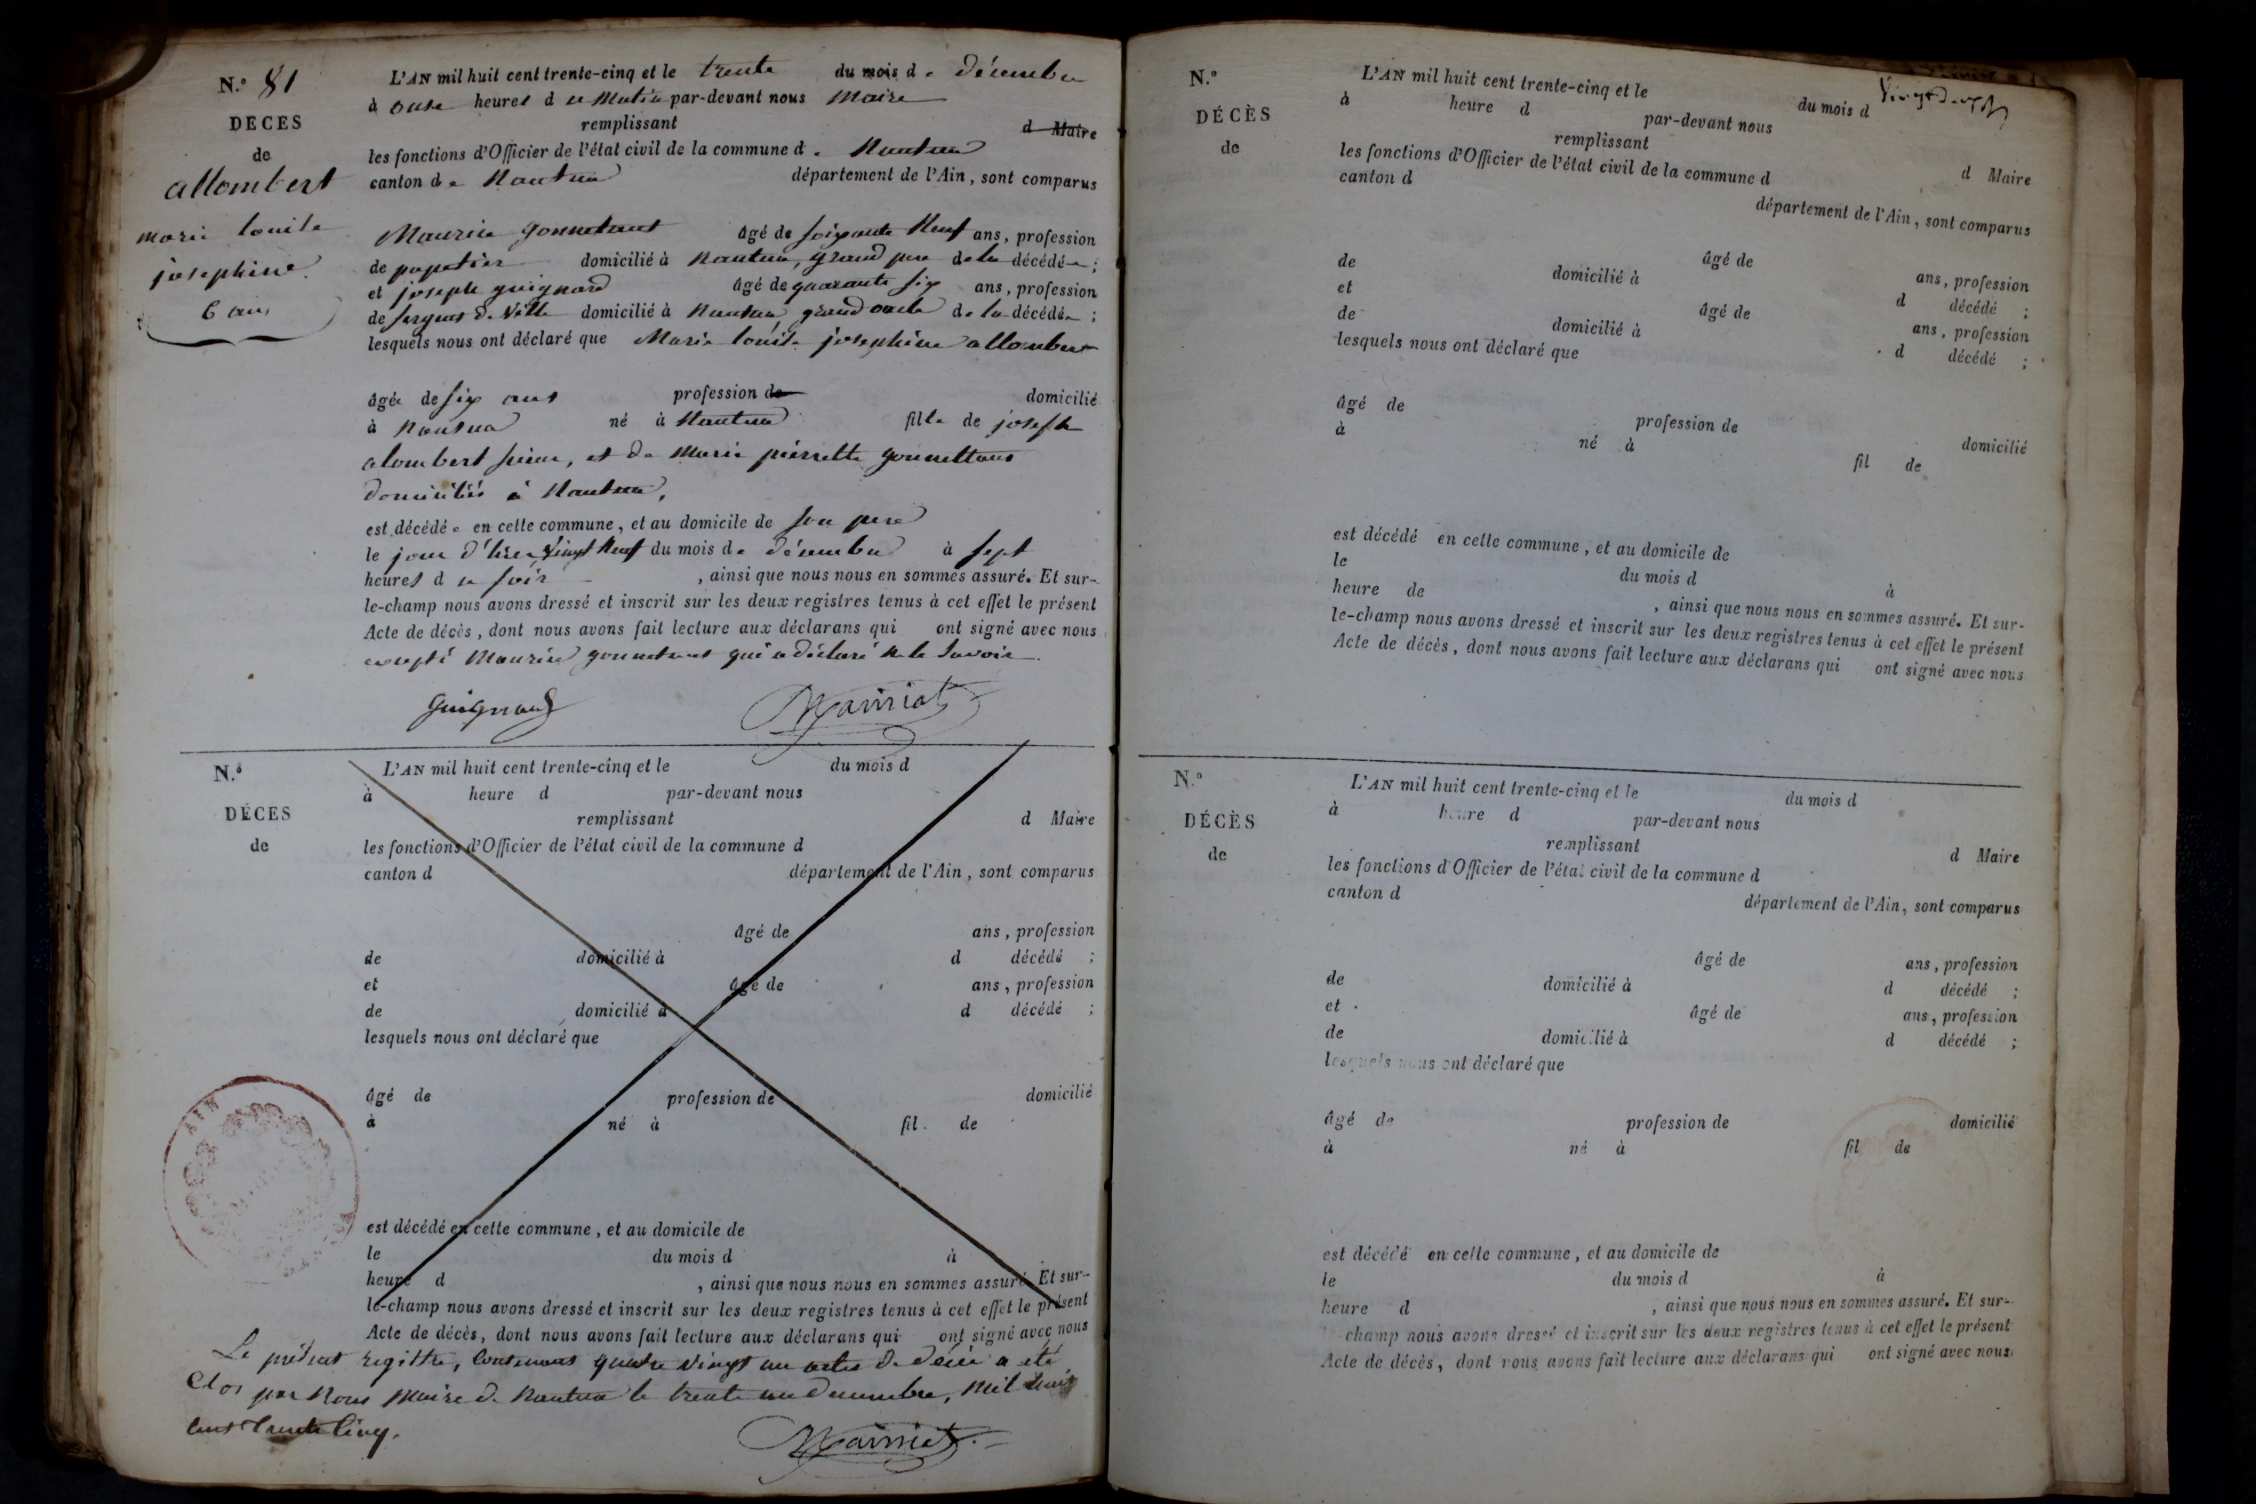 N.º 81
DECES
de
allombert
marie louise
josephine
6 ans
L'AN mil huit cent trente-cinq et le trente du mois de décembre
à onze heures du matin par-devant nous Maire
remplissant d Maire
les fonctions d'Officier de l'état civil de la commune de Nantua
canton de Nantua département de l'Ain, sont comparus
Maurice gonnetant âgé de soixante Neuf ans, profession
de papetier domicilié à Nantua, grand pere de la décédée;
et joseph guignard âgé de quarante six ans, profession
de sergent de Ville domicilié à Nantua grand oncle de la décédée;
lesquels nous ont déclaré que Marie louise josephine allombert
âgée de six ans profession de domicilié
à Nantua né à Nantua fille de joseph
alombert et de marie pierrette gonnettant
domiciliés à Nantua,
est décédée en cette commune, et au domicile de son pere
le jour d'hier Vingt Neuf du mois de décembre à sept
heures du soir, ainsi que nous nous en sommes assuré. Et sur-
le-champ nous avons dressé et inscrit sur les deux registres tenus à cet effet le présent
Acte de décès, dont nous avons fait lecture aux déclarans qui ont signé avec nous
excepté Maurice gonnetant qui a déclaré ne le savoir
guignard
N.º
DÉCES
de
L'AN mil huit cent trente-cinq et le du mois d
à heure d par-devant nous
remplissant d Maire
les fonctions d'Officier de l'état civil de la commune d
canton d département de l'Ain, sont comparus
âgé de ans, profession
de domicilié à d décédé ;
et âgé de ans, profession
de domicilié à d décédé ;
lesquels nous ont déclaré que
âgé de profession de domicilié
à né à fil de
est décédé en cette commune, et au domicile de
le du mois d à
heure d , ainsi que nous nous en sommes assuré. Et sur-
le-champ nous avons dressé et inscrit sur les deux registres tenus à cet effet le présent
Acte de décès, dont nous avons fait lecture aux déclarans qui ont signé avec nous
AIN
Le présent registre, contenant quatre vingt un actes de décès a été
Clos par Nous Maire de Nantua le trente un decembre, mil huit
cent trente Cinq.
N.º
DÉCÈS
de
L'AN mil huit cent trente-cinq et le du mois d
à heure d par-devant nous
remplissant d Maire
les fonctions d'Officier de l'état civil de la commune d
canton d département de l'Ain, sont comparus
âgé de ans, profession
de domicilié à d décédé ;
et âgé de ans, profession
de domicilié à d décédé ;
lesquels nous ont déclaré que
âgé de profession de domicilié
à né à fil de
est décédé en cette commune, et au domicile de
le du mois d à
heure de , ainsi que nous nous en sommes assuré. Et sur-
le-champ nous avons dressé et inscrit sur les deux registres tenus à cet effet le présent
Acte de décès, dont nous avons fait lecture aux déclarans qui ont signé avec nous
N.º
DÉCÈS
de
L'AN mil huit cent trente-cinq et le du mois d
à heure d par-devant nous
remplissant d Maire
les fonctions d'Officier de l'état civil de la commune d
canton d département de l'Ain, sont comparus
âgé de ans, profession
de domicilié à d décédé ;
et âgé de ans, profession
de domicilié à d décédé ;
lesquels nous ont déclaré que
âgé de profession de domicilié
à né à fil de
est décédé en cette commune, et au domicile de
le du mois d à
heure d , ainsi que nous nous en sommes assuré. Et sur-
champ nous avons dressé et inscrit sur les deux registres tenus à cet effet le présent
Acte de décès, dont nous avons fait lecture aux déclarans qui ont signé avec nous